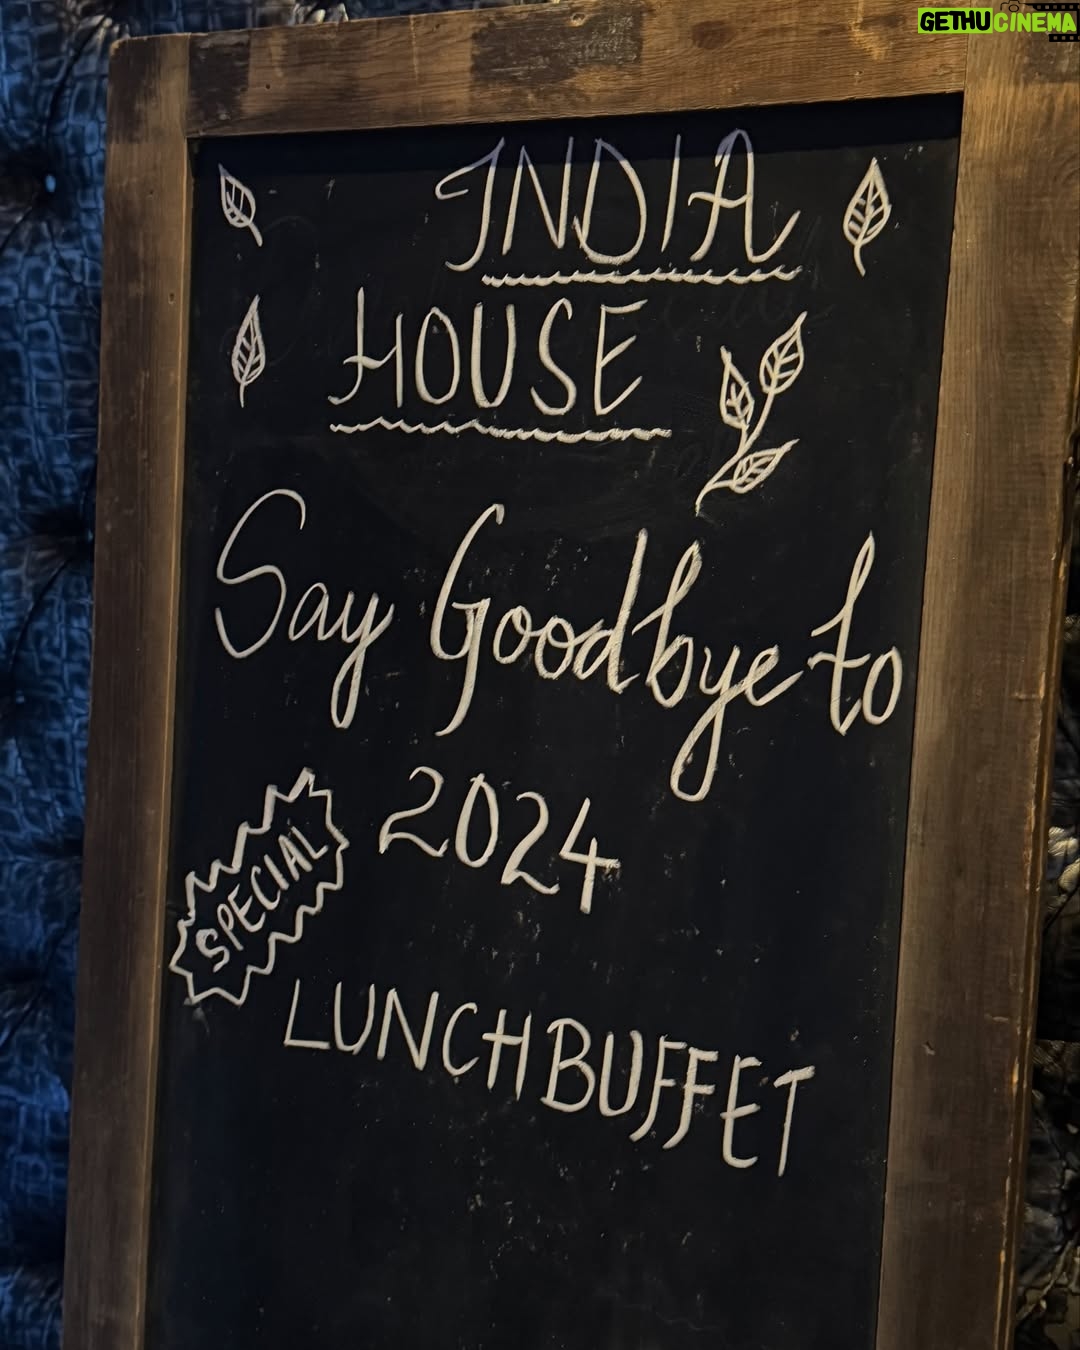 GETHUCINEMA
INDIA
HOUSE
Say Goodbye to
2024
SPECIAL
LUNCH BUFFET